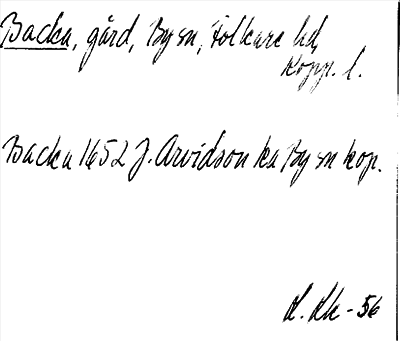 Backa, gård, By sn, Folkare hd,
Kopp. l.
Backa 1652 J. Arvidson ka By sn kop.
- 56